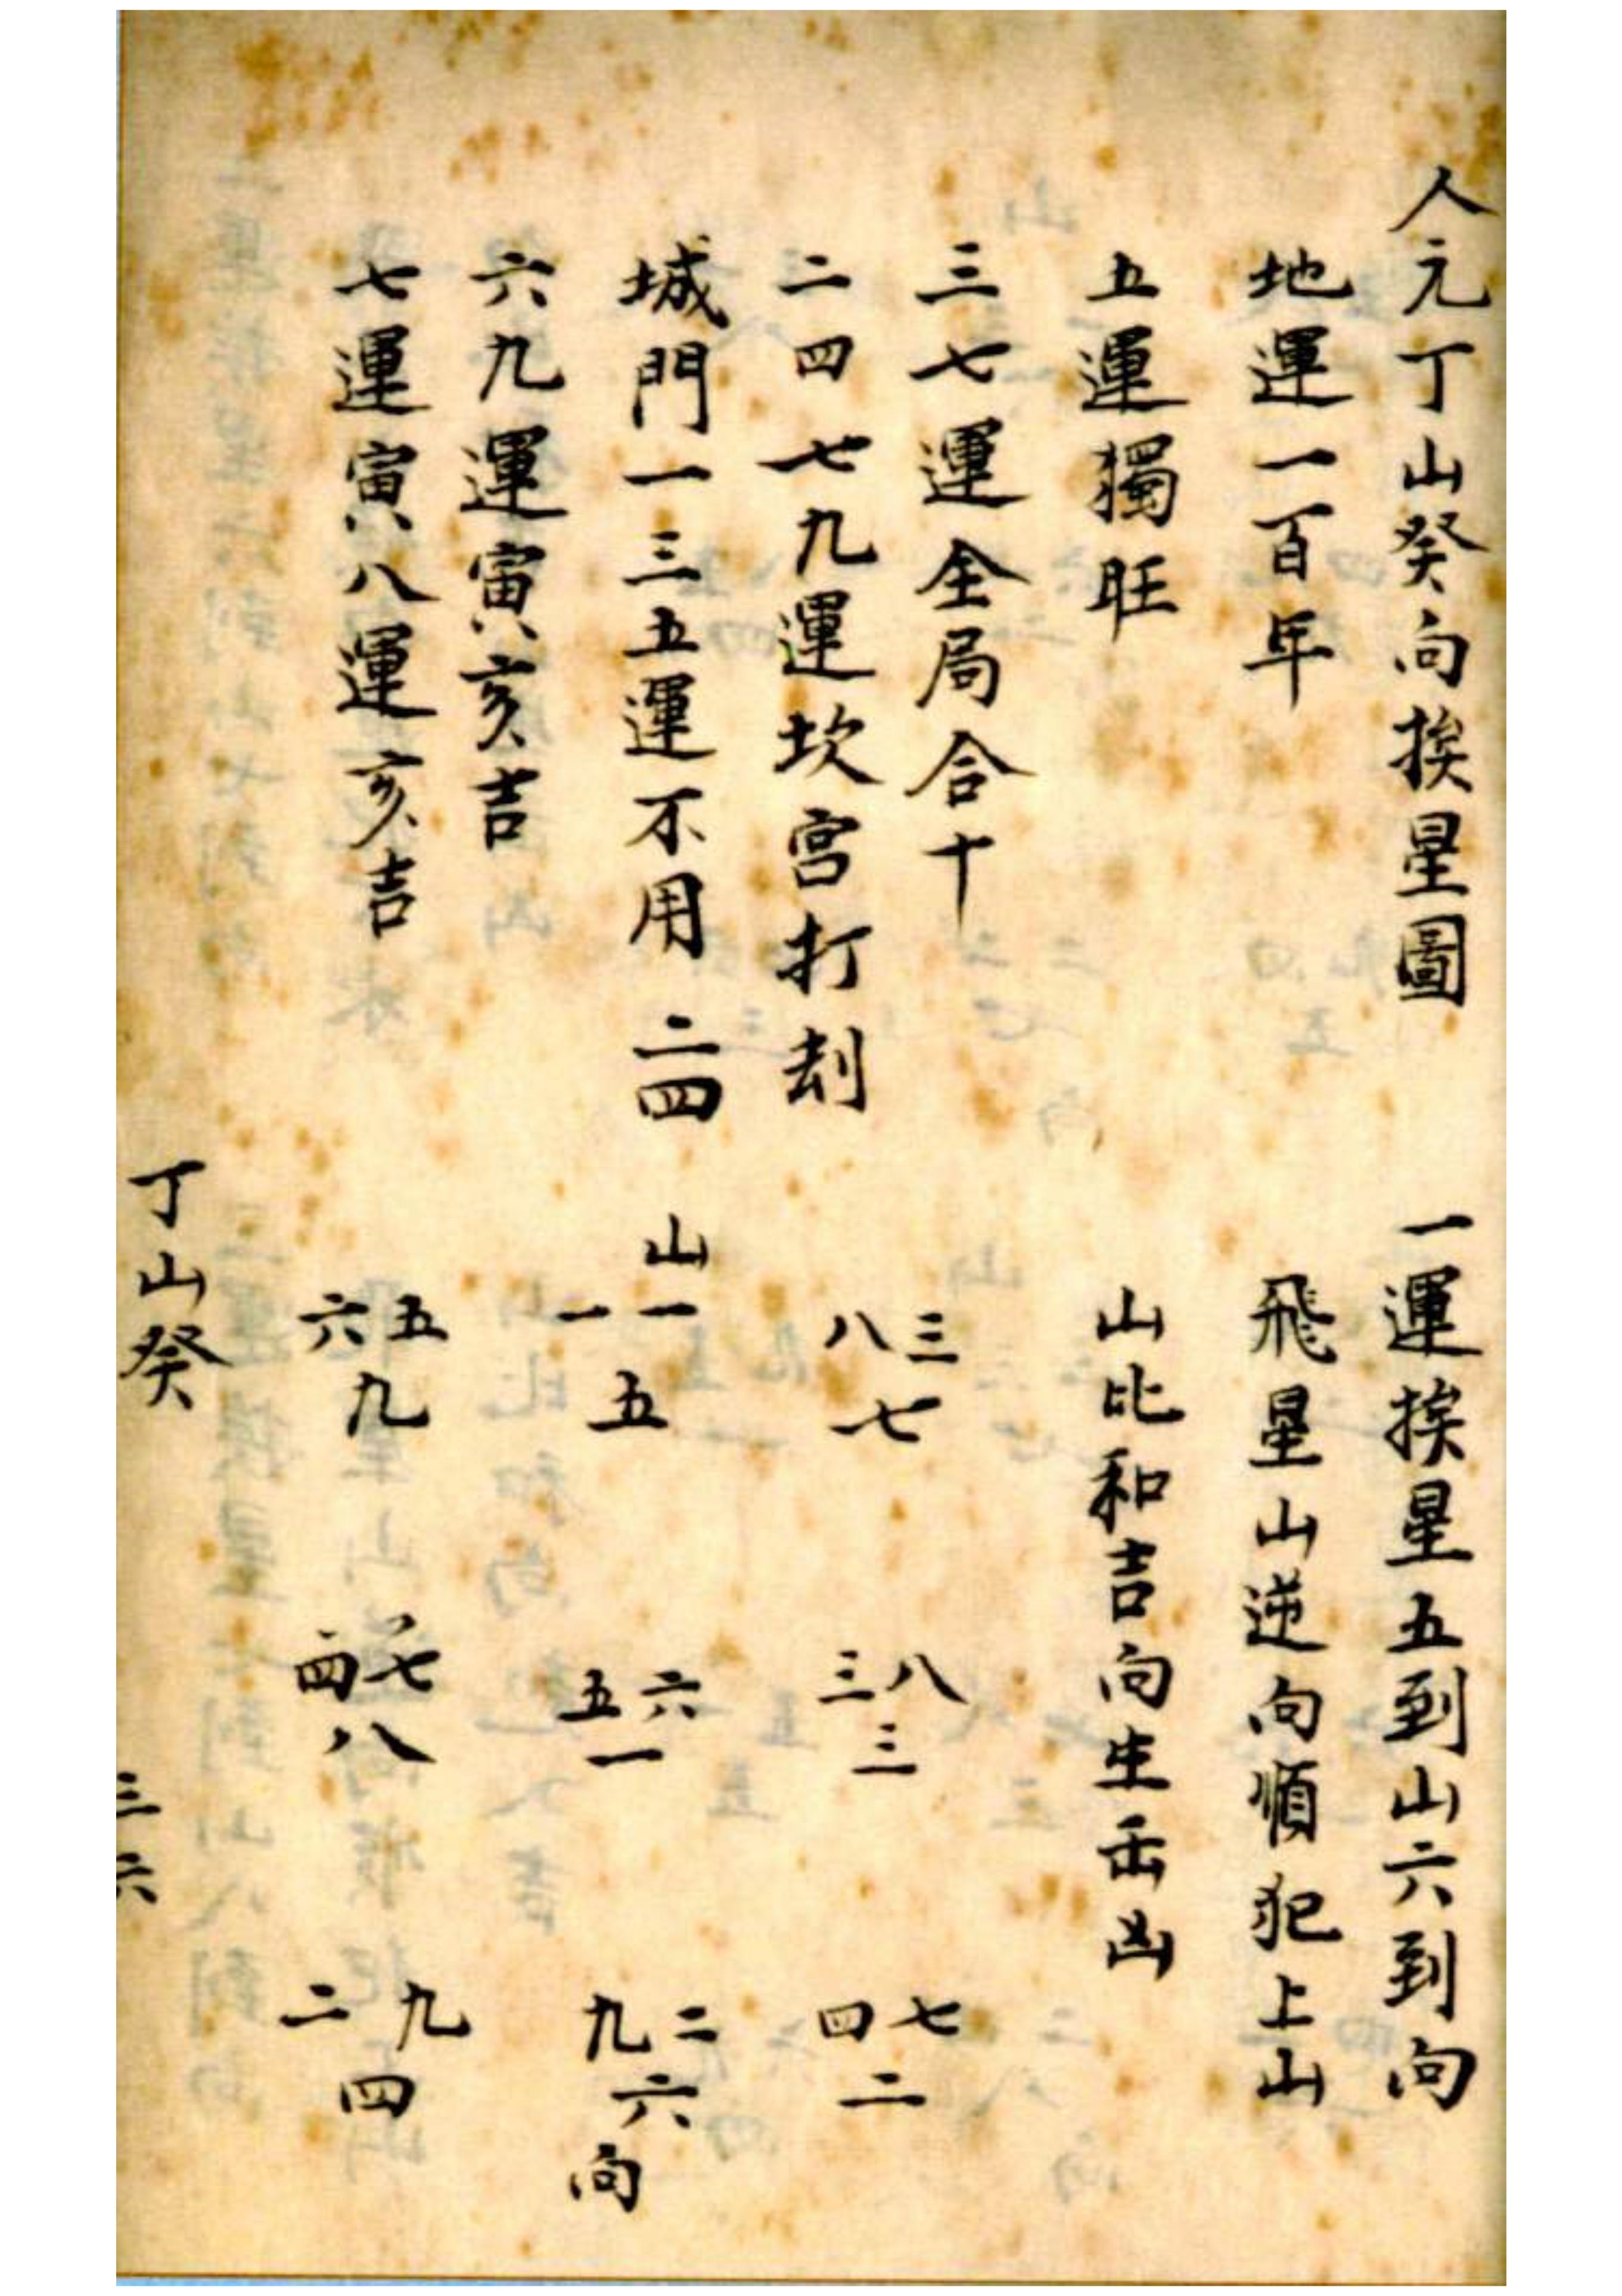 人元丁山癸向挨星圖
地運一百年
五運獨旺
三七運全局合十
二四七九運坎宮打刦
城門一三五運不用 二四
六九運寅亥吉
七運寅八運亥吉
一運挨星五到山六到向
飛星山逆向順犯上山
山比和吉向生出凶
八三
七
三八
三
四七
二
山
一一
五
五六
一
九二
六
向
六五
九
四七
八
二九
四
丁山癸
三六